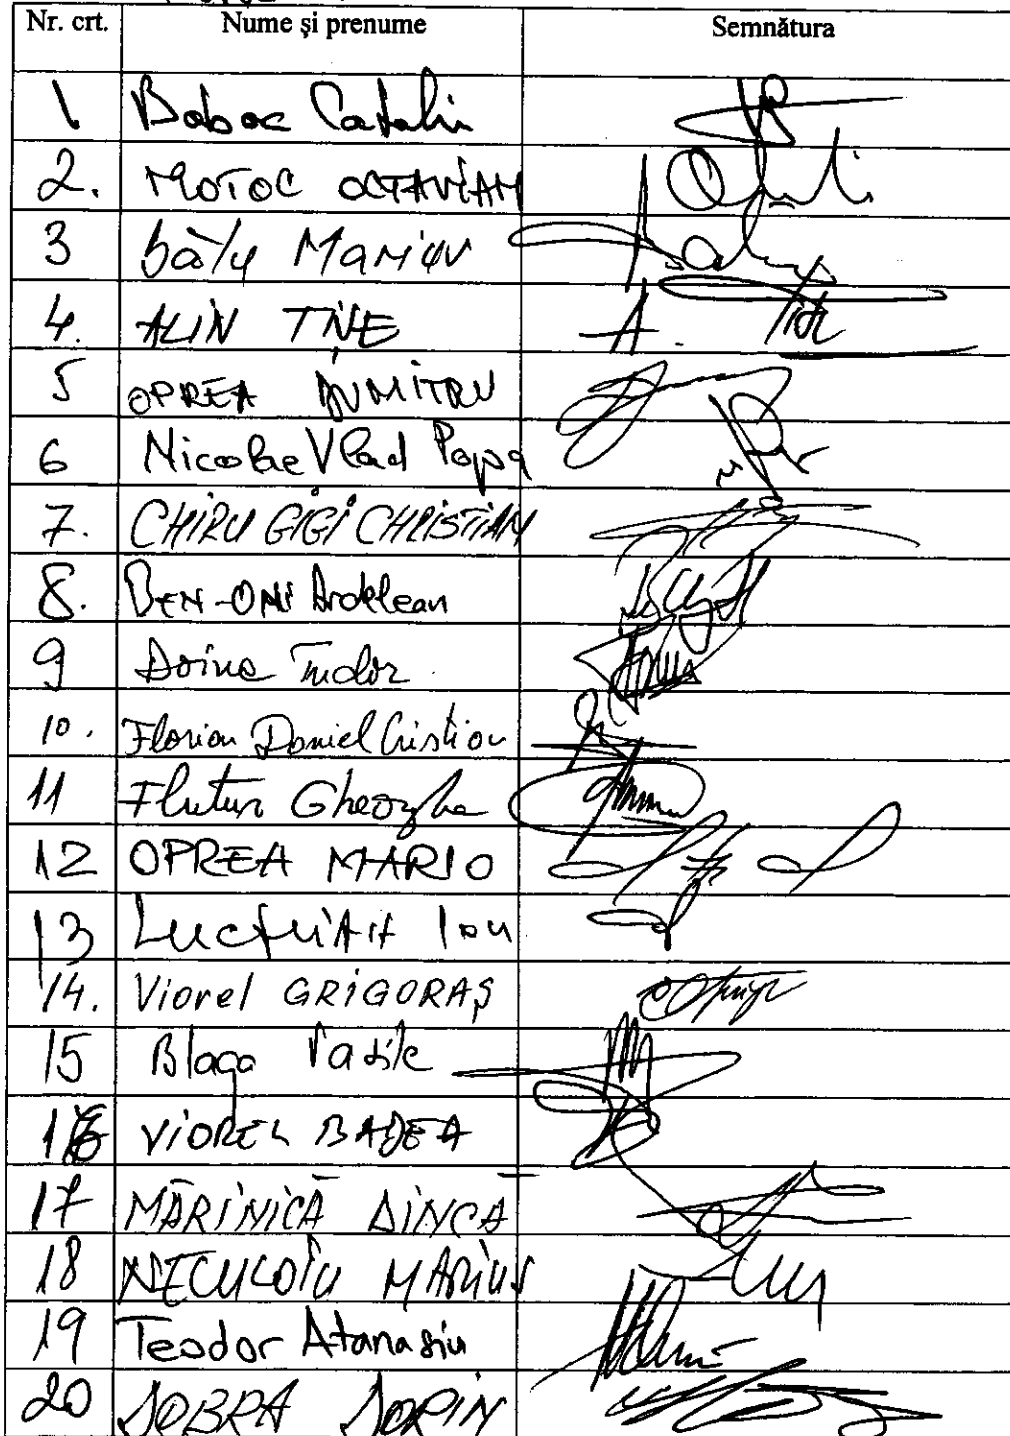 Nr. crt. Nume și prenume Semnătura
1 Boboc Catalin
2. MOTOC OCTAVIAN
3 Bâlu Marian
4. ALIN TIȘE
5 OPREA DUMITRU
6 Nicolae Vlad Popa
7. CHIRU GIGI CHRISTIAN
8. BEN-ONI Ardelean
9 Doina Tudor
10. Florian Daniel Cristian
11 Flutur Gheorghe
12 OPREA MARIO
13 Ion
14. Viorel GRIGORAȘ
15 Blaga Vasile
16 VIOREL BADEA
17 MĂRINICĂ DINCĂ
18 NECULOIU MARIUS
19 Teodor Atanasiu
20 SOBRA SORIN